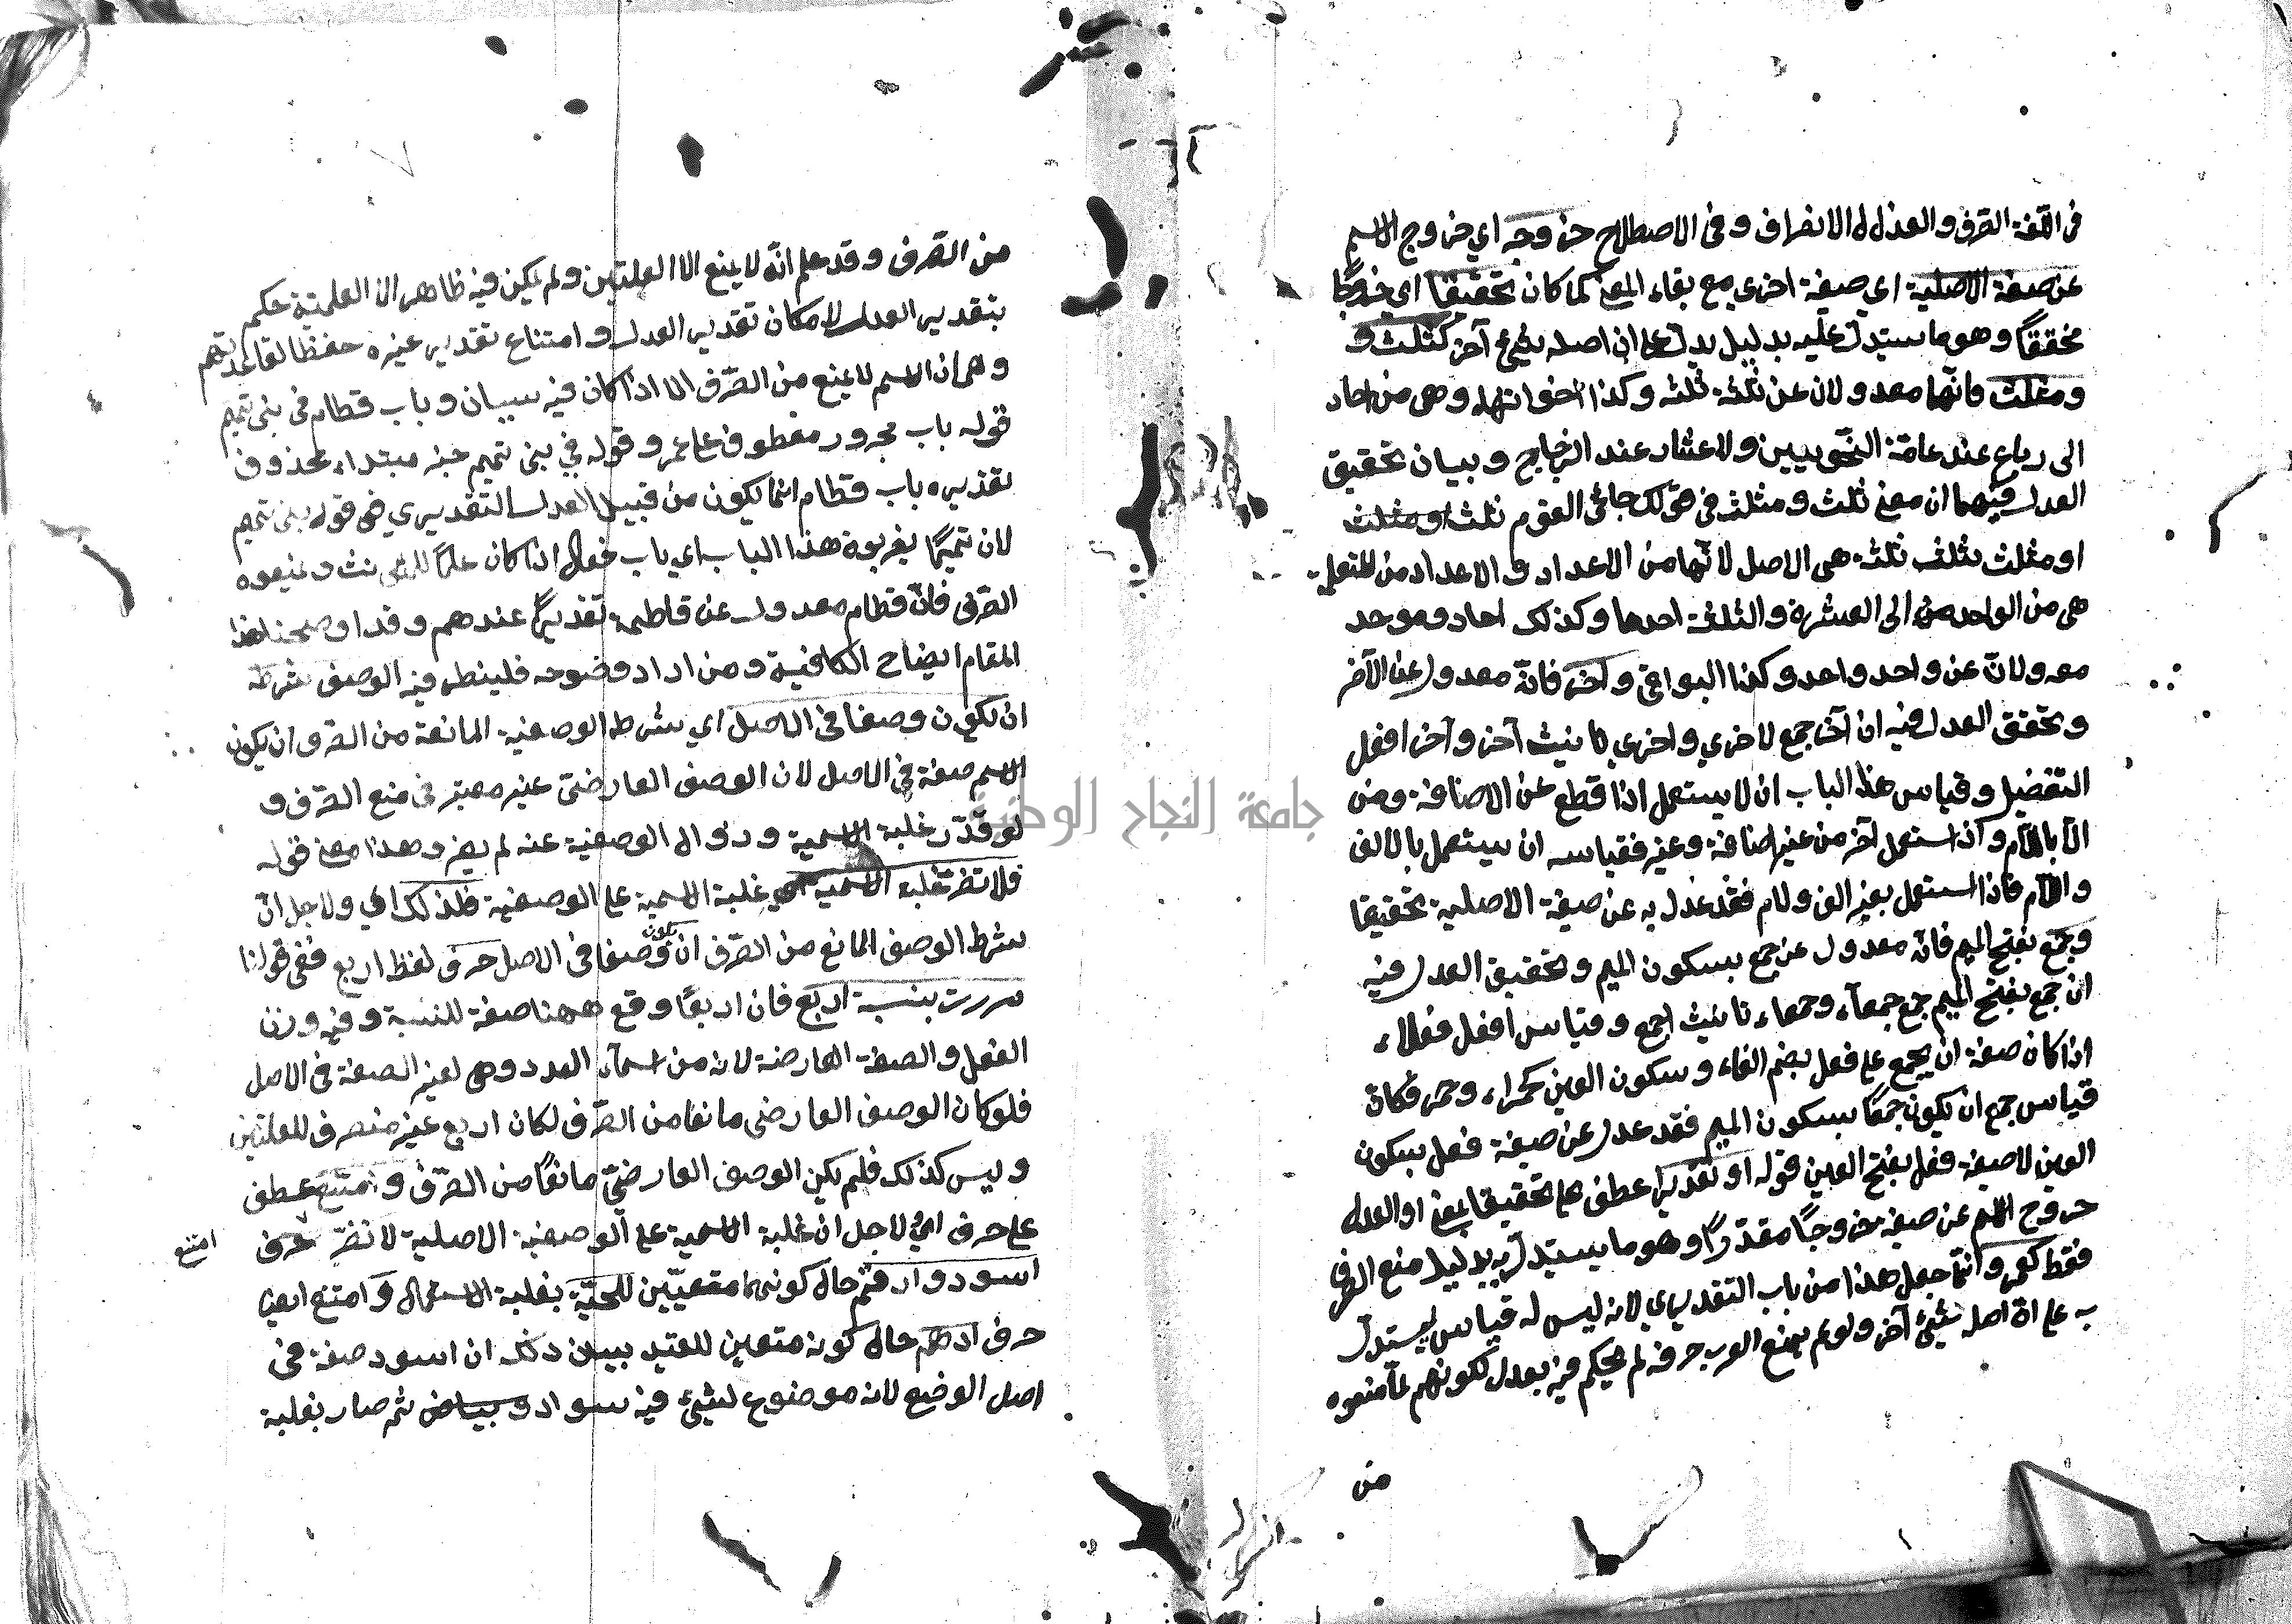 في اللغة الصرف والعدل له الانصراف وفي الاصطلاح خروجه اي خروج الاسم
عن صيغة الاصلية اي صيغة اخري مع بقاء المعنى كما كان تحقيقا اي خروجًا
محققًا وهو ما يستدل عليه بدليل يدل على ان اصله شيء آخر كثلث و
ومثلث فانهما معدولان عن ثلثة ثلثة وكذا اخواتهما وهى من احاد
الى رباع عند عامة النحويين ولا عشار عند الزجاج وبيان تحقيق
العدل فيهما ان معنى ثلث ومثلث في قولك جائى القوم ثلث او مثلث
او مثلث ثلثة هى الاصل لانها من الاعداد والاعداد من
هى من الواحد الى العشرة والثلثة احدها وكذلك احاد وموحد
معدولان عن واحد واحد وكذا البواقى وآخر فانّه معدول عن الآخر
وتحقق العدل فيه ان آخر جمع لاخري واخري تانيث آخر وآخر افعل
التفضيل وقياس هذا الباب ان لا يستعمل اذا قطع عن الاضافة ومن
الا باللام واذ استعمل آخر من غير اضافة وغير فقياسه ان يستعمل بالالف
واللام فاذا استعمل بغير الف ولام فقد عدل به عن صيغة الاصلية تحقيقا
وجمع بفتح الميم فانّه معدول عن جمع بسكون الميم وتحقيق العدل فيه
ان جمع بفتح الميم جمع جمعآء وجمعاء تانيث اجمع وقياس افعل فعلاء
اذا كان صفة ان يجمع على فعل بضم الفاء وسكون العين كحمراء وحمر فكان
قياس جمع ان يكون جمعًا بسكون الميم فقد عدل عن صيغة فعل بسكون
العين لا صيغة فعل بفتح العين قوله او تقديرا عطف على تحقيقا بمعنى او العدل
خروج الاسم عن صيغة خروجًا مقدرًا وهو ما يستدل به بدليل منع الصرف
فقط كعمر وانّما جعل هذا من باب التقديري لانه ليس له قياس يستدل
به على ان اصله شيئ آخر ولو لم يمنع العرب حرفه لم يحكم فيه بعدل لكونهم لما منعوه
من
من الصرف وقد علم انّه لا يمنع الا العلتين ولم يكن فيه ظاهر الا العلمية حكم
بتقدير العدل لامكان تقدير العدل وامتناع تقدير غيره حفظا لقاعدتهم
وهى ان الاسم لا يمنع من الصرف الا اذا كان فيه سببان وباب قطام في بنى تميم
قوله باب مجرور معطوف على عمر وقوله في بنى تميم خبر مبتداء محذوف
تقديره باب قطام انما يكون من قبيل العدل التقديري في قوله بنى تميم
لان تميمًا يعربون هذا الباب اي باب فعال اذا كان علمًا للمؤنث ويمنعوه
الصرف فانّ قطام معدول عن قاطمة تقديرًا عندهم وقد اوضحنا هذا
المقام ايضاح الكافية ومن اراد وضوحه فلينظر فيه الوصف شرطه
ان يكون وصفا في الاصل اي شرط الوصفية المانعة من الصرف ان يكون
الاسم صفة في الاصل لان الوصف العارضيّ غير معتبر في منع الصرف و
لو قدّر غلبة الاسمية وزوال الوصفية عنه لم يضر وهذا معنى قوله
فلا تضرّ غلبة الاسمية اي غلبة الاسمية على الوصفية فلذلك اي ولاجل انّ
شرط الوصف المانع من الصرف ان يكون وصفا في الاصل صرف لفظ اربع ففى قولنا
مررت بنسبة اربع فان اربعًا وقع ههنا صفة للنسبة وفيه وزن
الفعل والصفة العارضة لانه من اسمآء العدد وهى لغير الصفة في الاصل
فلو كان الوصف العارضى مانعا من الصرف لكان اربع غير منصرف للعلتين
وليس كذلك فلم يكن الوصف العارضيّ مانعًا من الصرف وامتنع عطف
على صرف اي لاجل ان غلبة الاسمية على الوصفية الاصلية لا تضرّ صرف
امتنع
اسود وارقم حال كونهما مقعيّين للحيّة بغلبة الاستعمال وامتنع ايضا
صرف ادهم حال كونه متعين للقيد بيان ذلك ان اسود صفة في
اصل الوضع لانه موضوع لشيئ فيه سواد وبياض ثم صار بغلبة
جامعة النجاح الوطنية